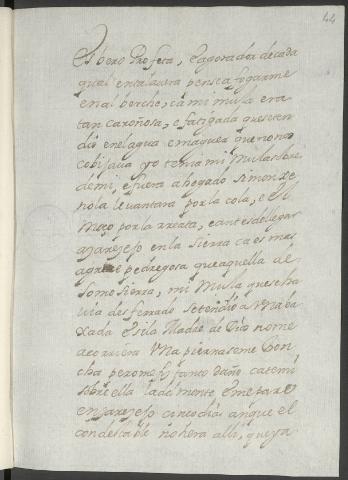 44
vero Profeta, e agorador de cada
qual en Talavera pense fogarme
en al berche, ca mi mula era
tan carañosa, e fatigada que se ten
dio en el agua e maguer que no nos
cobijava yo tenia mi mula sobre
de mi, e fuera ahogado si monxe
no la levantara por la cola, e el
Moço por la arreata, e antes de llegar
a en la sierra ca es mas
agre e pedregosa que aquella de
Somosierra, mi Mula que se ha
via desferrado se tendió a una ba
xada e si la Madre de Dio no me
acorriera una pierna se me
cha pero me fiz franco daño catemi
sobre ella ladamente e me pare
en cinco dias anque el
condestable no hera alli, que ya